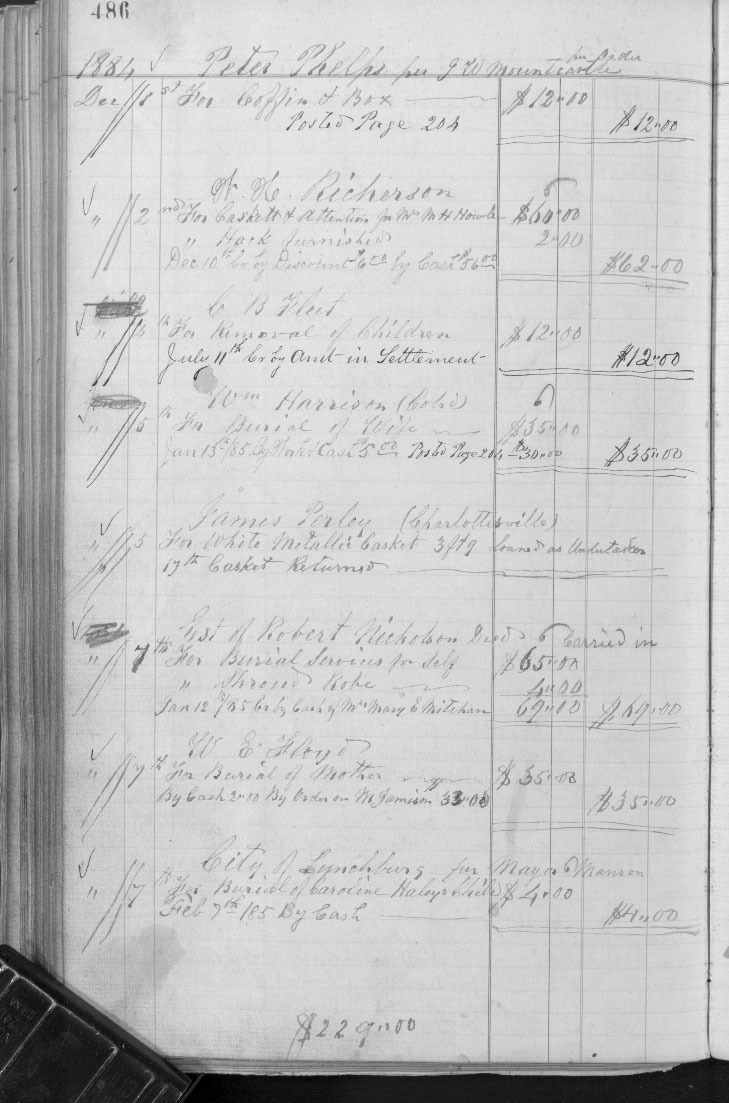 486
1884 Peter Phelps per J W Mountcastle per Order
Dec 1st For Coffin & Box $12"00
Posted Page 204 $12"00
Richerson
" 2nd For Caskett & Attention for Mrs M H Howle $60"00
" Hack furnished 2"00
Dec 10th Cr by Discount $6.00 by Cash $56.00 $62"00
C B Fleet
" 4th For Removal of Children $12"00
July 11th Cr by Amt in Settlement $12"00
Wm Harrison (Cold)
" 5th For Burial of Wife $35"00
Jan 13th /85 By Work & Cash 5.00 Posted Page 204 30"00 $35"00
James Perley (Charlottesville)
" 5 For White Metallic Casket 3ft9 Loaned as Undertaker
17th Casket Returned
Est of Robert Nicholson Decd Carried in
" 7th For Burial Services for Self $65"00
" Shroud Robe 4"00
Jan 12th /85 Cr by Cash of Mrs Mary E Mitchan 69"00 $69"00
W E Floyd
" 7th For Burial of Mother $35"00
By Cash 2"00 By Order on Jamison 33"00 $35"00
City of Lynchburg per Mayor Manson
" 7th For Burial of Caroline Haley's Child $4"00
Feb 7th /85 By Cash $4"00
$229"00